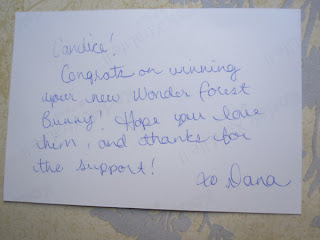 Candice!
Congrats on winning
your new Wonder Forest
Bunny! Hope you love
them, and thanks for
the support!
xo Dana